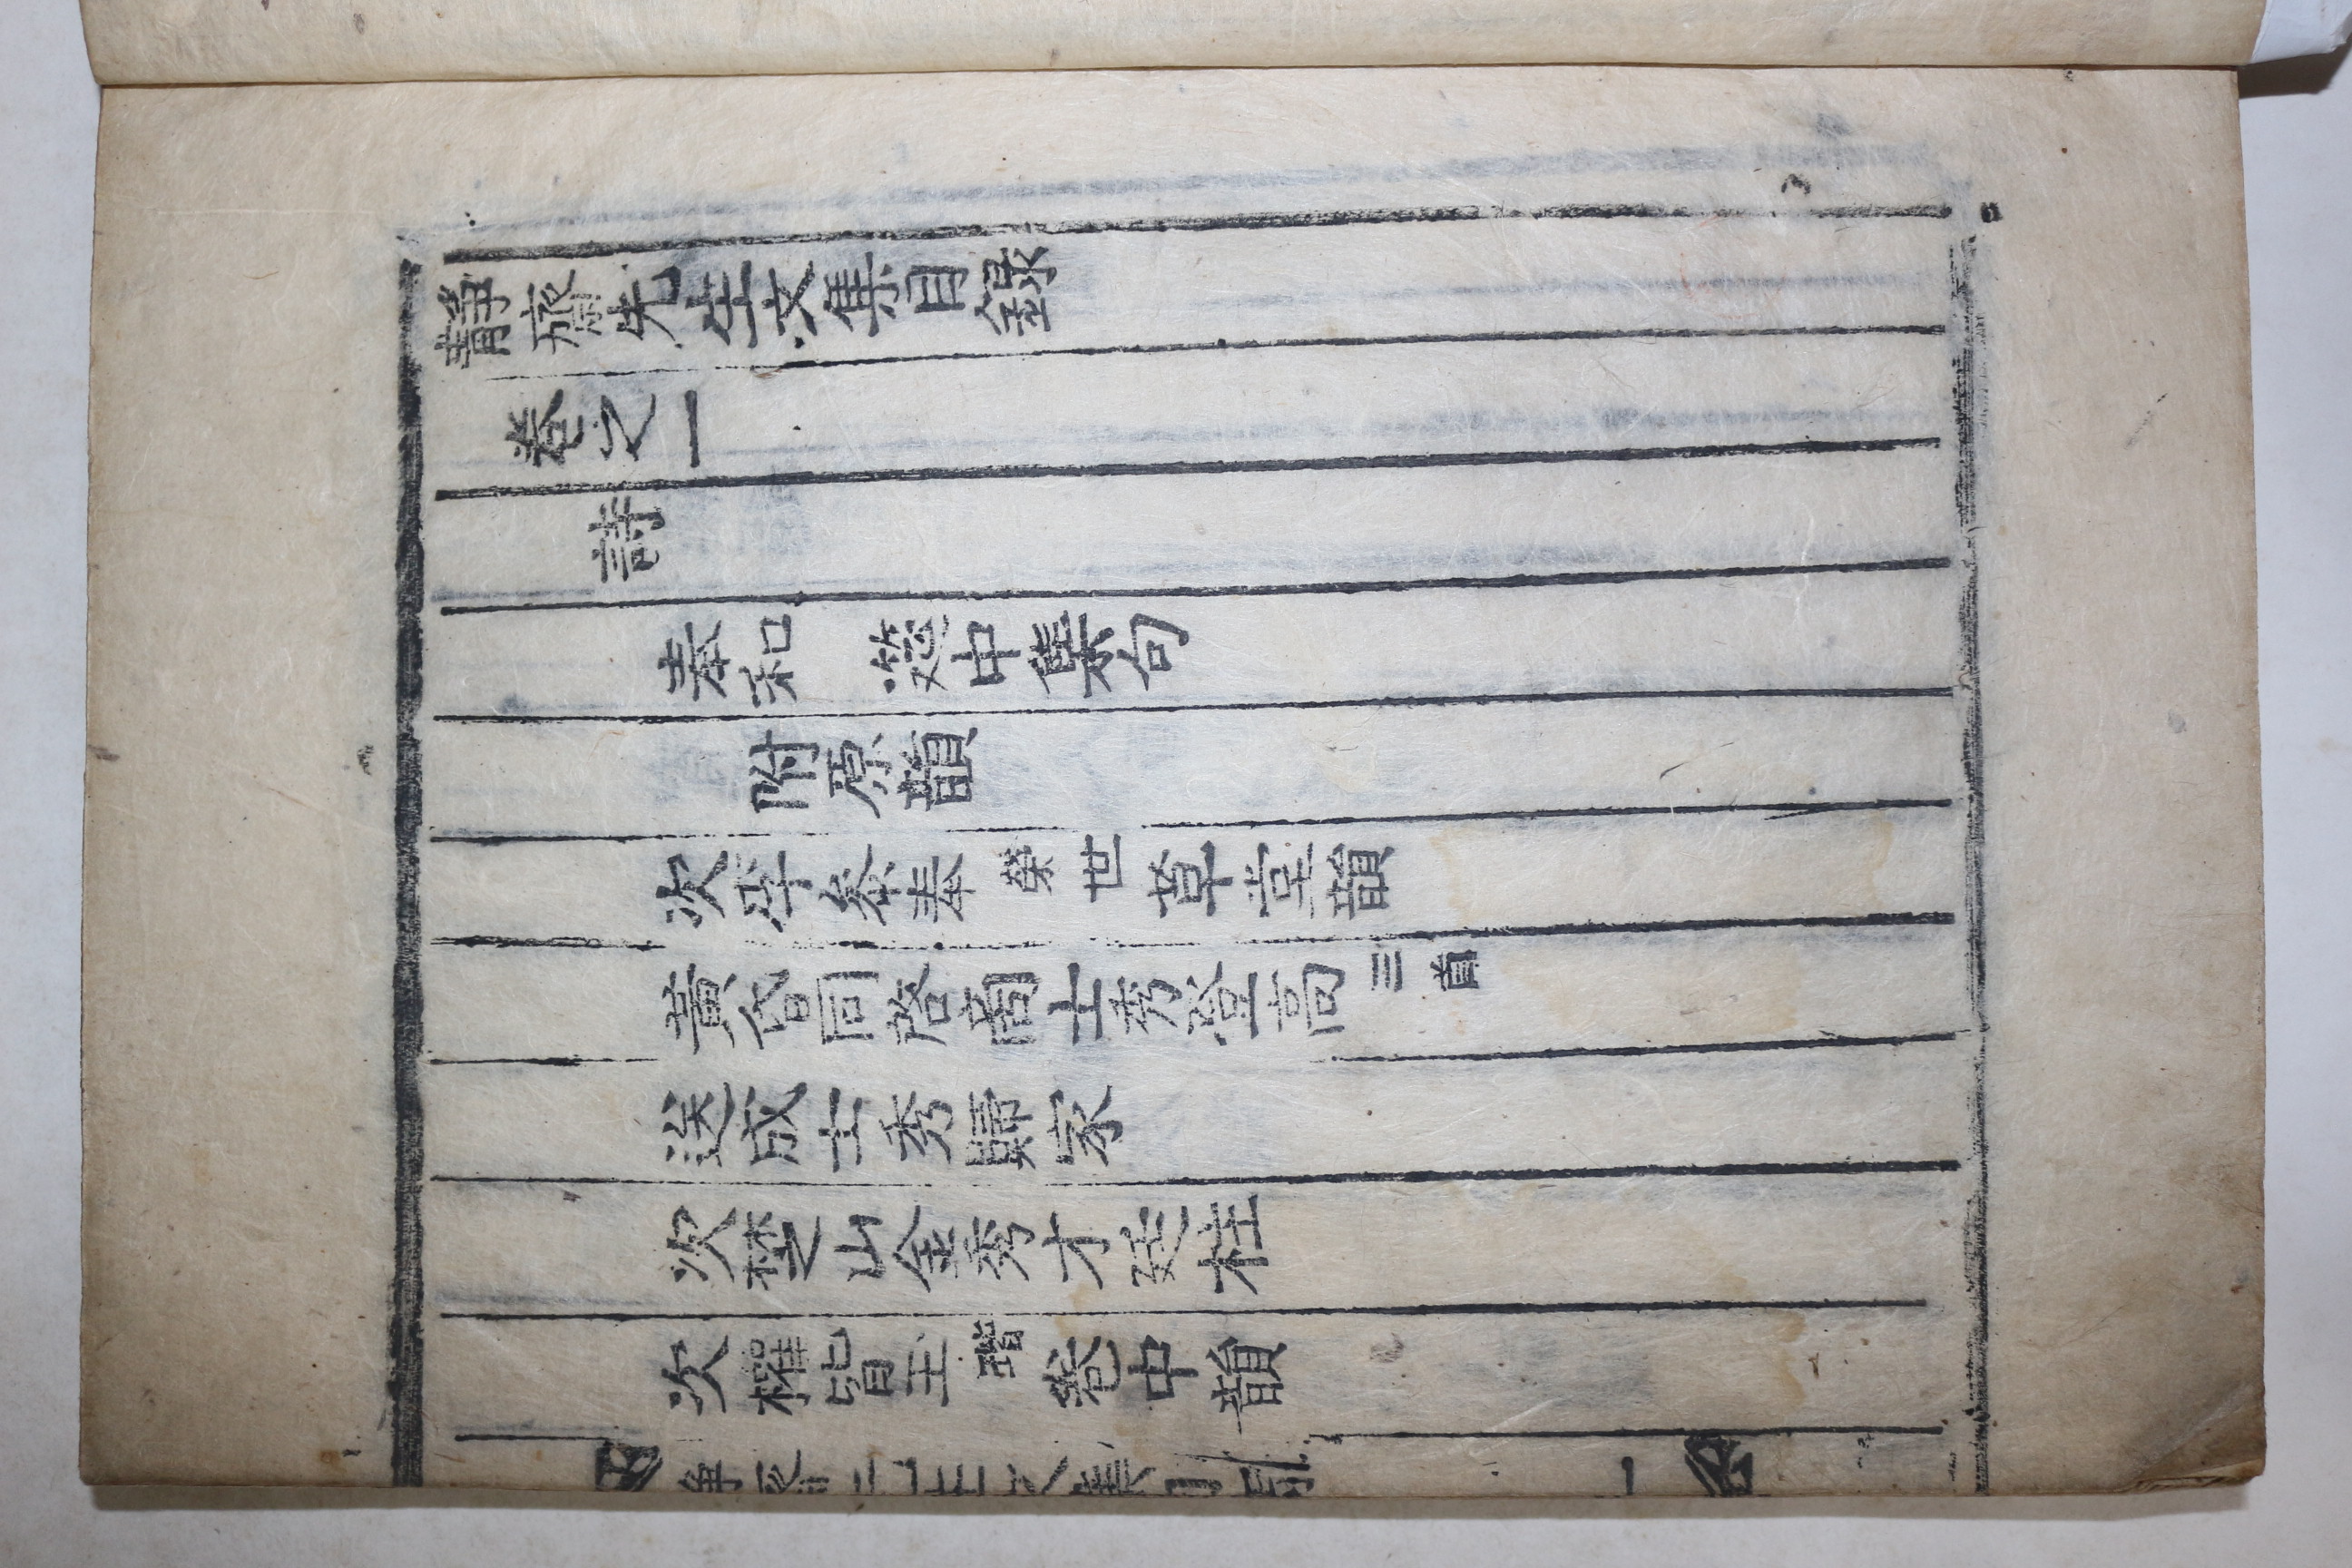 静齋先生文集目錄
卷之一
詩
奉和 筵中集句
附原韻
次李叅奉 榮世 草堂韻
黃昏同啓商士秀登高 三首
送成士秀歸家
次楚山金秀才廷柱
次權皆玉 瑎 卷中韻
一